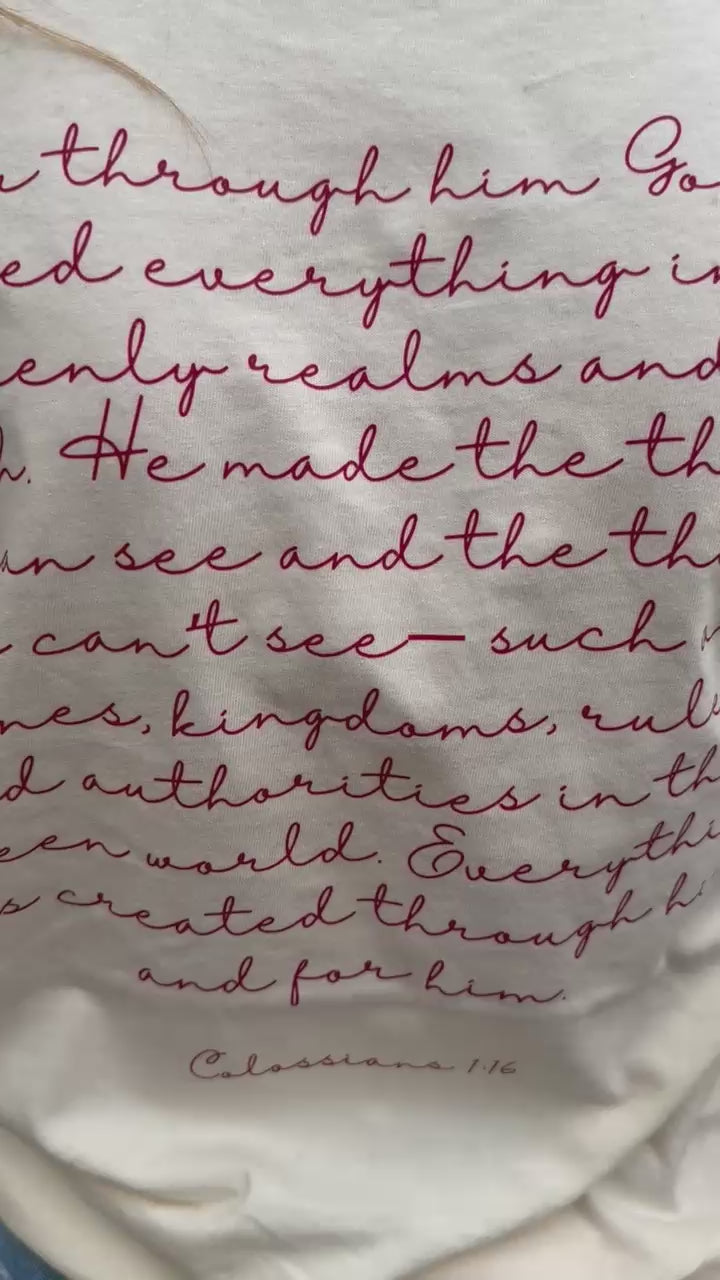 through him Go
ed everything in
enly realms and
h. He made the th
an see and the thi
can't see— such
nes, kingdoms, rul
d authorities in th
een world. Everythi
s created through hi
and for him.
Colossians 1:16